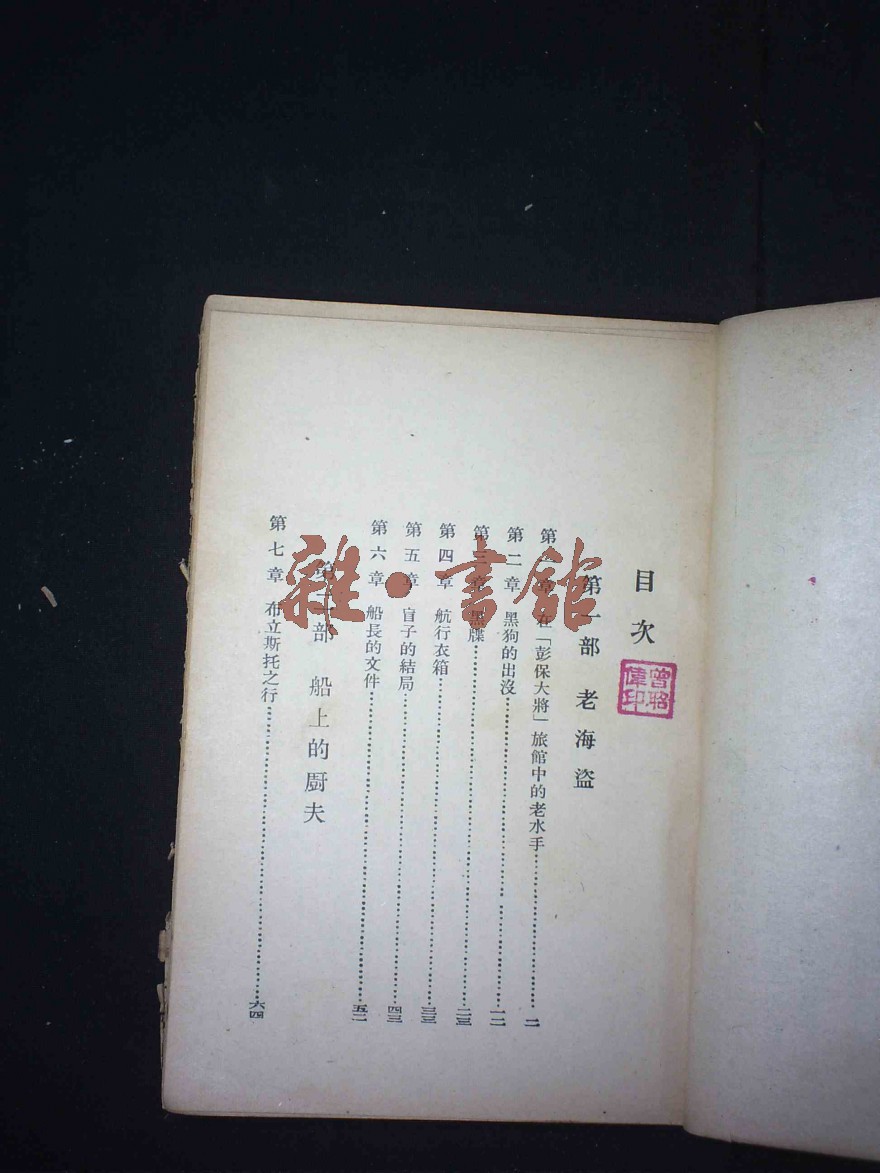 目次
曾昭偉印
第一部 老海盜
第一章 在「彭保大將」旅館中的老水手 二
第二章 黑狗的出沒 一二
第三章 黑牒 二三
第四章 航行衣箱 三三
第五章 盲子的結局 四三
第六章 船長的文件 五二
第二部 船上的厨夫
第七章 布立斯托之行 六四
雜·書館